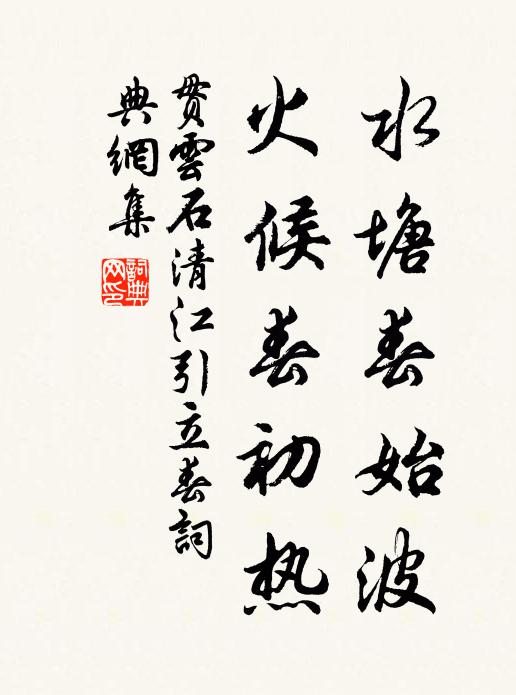 水塘春始波
火候春初热
贯云石清江引立春詞
典網集
詞典网印